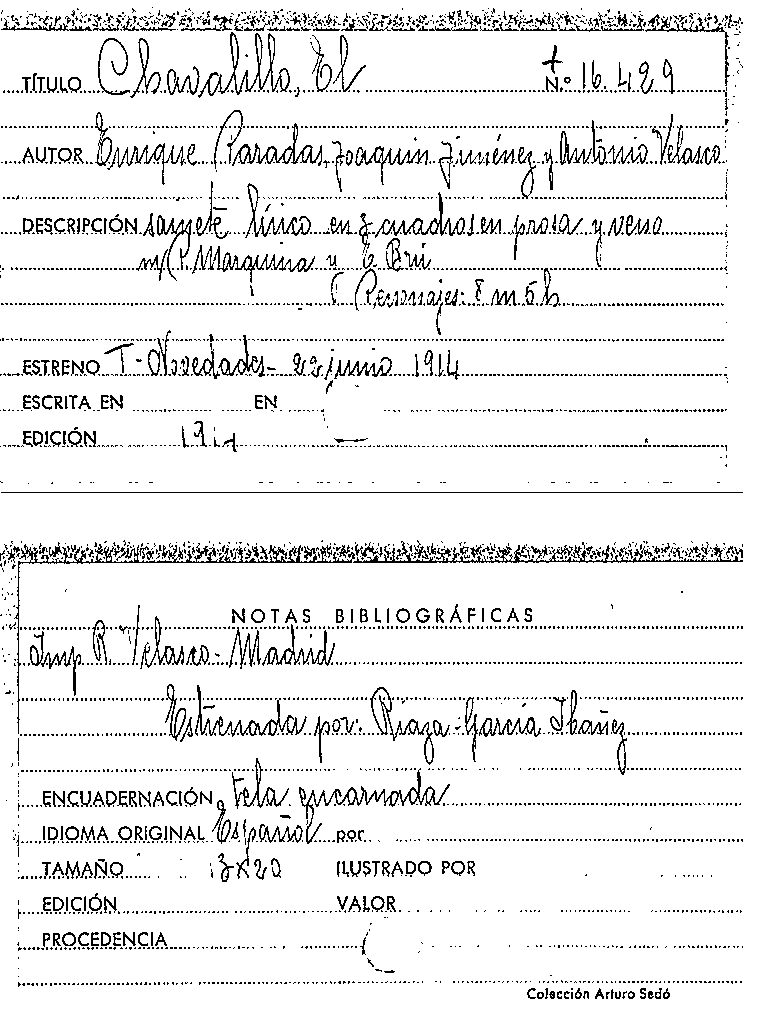 TÍTULO Chavalillo, El N.º 16.429
AUTOR Enrique Paradas, Joaquin Jiménez y Antonio Velasco
DESCRIPCIÓN sainete lírico en 3 cuadros en prosa y verso
m P. Marquina y E Brú
Personajes: 8 m 5 h
ESTRENO T- Novedades- 22 junio 1914
ESCRITA EN EN
EDICIÓN 1914
NOTAS BIBLIOGRÁFICAS
Imp R. Velasco- Madrid
Estrenada por: Riaza-García Ibañez
ENCUADERNACIÓN tela encarnada
IDIOMA ORIGINAL Español por
TAMAÑO 13x20 ILUSTRADO POR
EDICIÓN VALOR
PROCEDENCIA
Colección Arturo Sedó